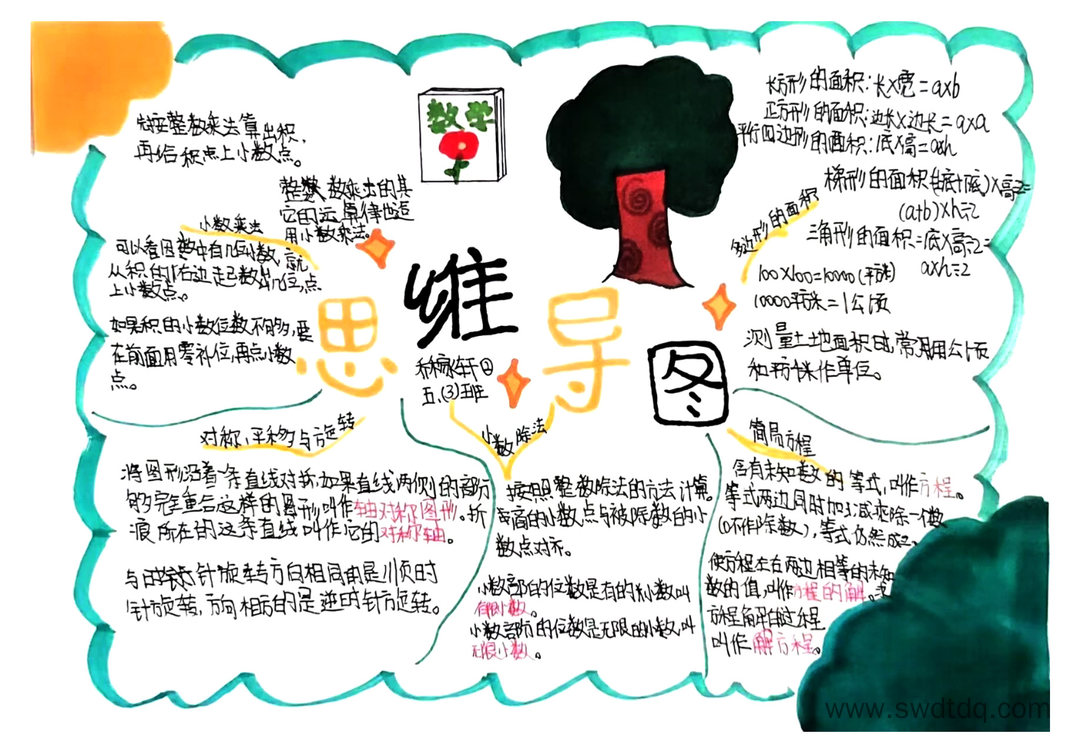 先按整数乘法算出积,
再给积点上小数点。
整数乘法的其
它的运算律也适
用小数乘法。
小数乘法
可以看因数中有几位小数,就
从积的右边起数出几位,点
上小数点。
如果积的小数位数不够多,要
在前面用零补位,再点小数
点。
数学
思维导图
五.(3)班
长方形的面积:长×宽=a×b
正方形的面积:边长×边长=a×a
平行四边形的面积:底×高=a×h
梯形的面积
(a+b)×h÷2
多边形的面积
三角形的面积=底×高÷2=
a×h÷2
100×100=10000(平米)
10000平米=1公顷
测量土地面积时,常用公顷
和 作单位。
对称,平移与旋转
将图形沿着一条直线对折,如果直线两侧的部分
够完全重合这样的图形叫作轴对称图形。折
痕所在的这条直线叫作它的对称轴。
与 针旋转方向相同的是顺时
针旋转,方向相反的是逆时针方旋转。
小数除法
按照整数除法的方法计算,
商的小数点与被除数的小
数点对齐。
小数部分的位数是有的小数叫
有限小数。
小数部分的位数是无限的小数,叫
无限小数。
简易方程
含有未知数的等式,叫作方程。
等式两边同时加 减 除一个数
(0不作除数),等式仍然成立。
使方程左右两边相等的未知
数的值,叫作方程的解。求
方程解的过程
叫作解方程。
www.swdtdq.com